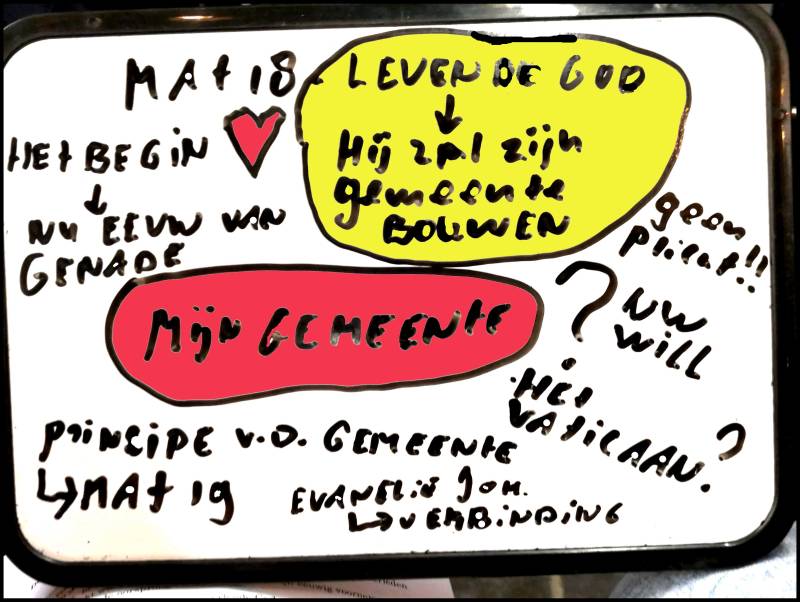 MAT 18. LEVENDE GOD
↓
Hij zal zijn
gemeente
BOUWEN
HET BEGIN
↓
NU EEUW VAN
GENADE
geen
plicht!!
MijN GEMEENTE
? NW
WILL
HET
VATICAAN.?
PRINCIPE V.D. GEMEENTE
↳ MAT 19
EVANELIE JOH.
↳ VERBINDING